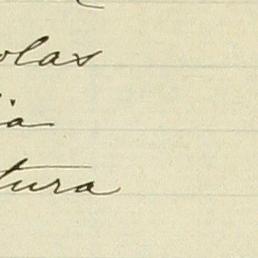 olas
ia
tura